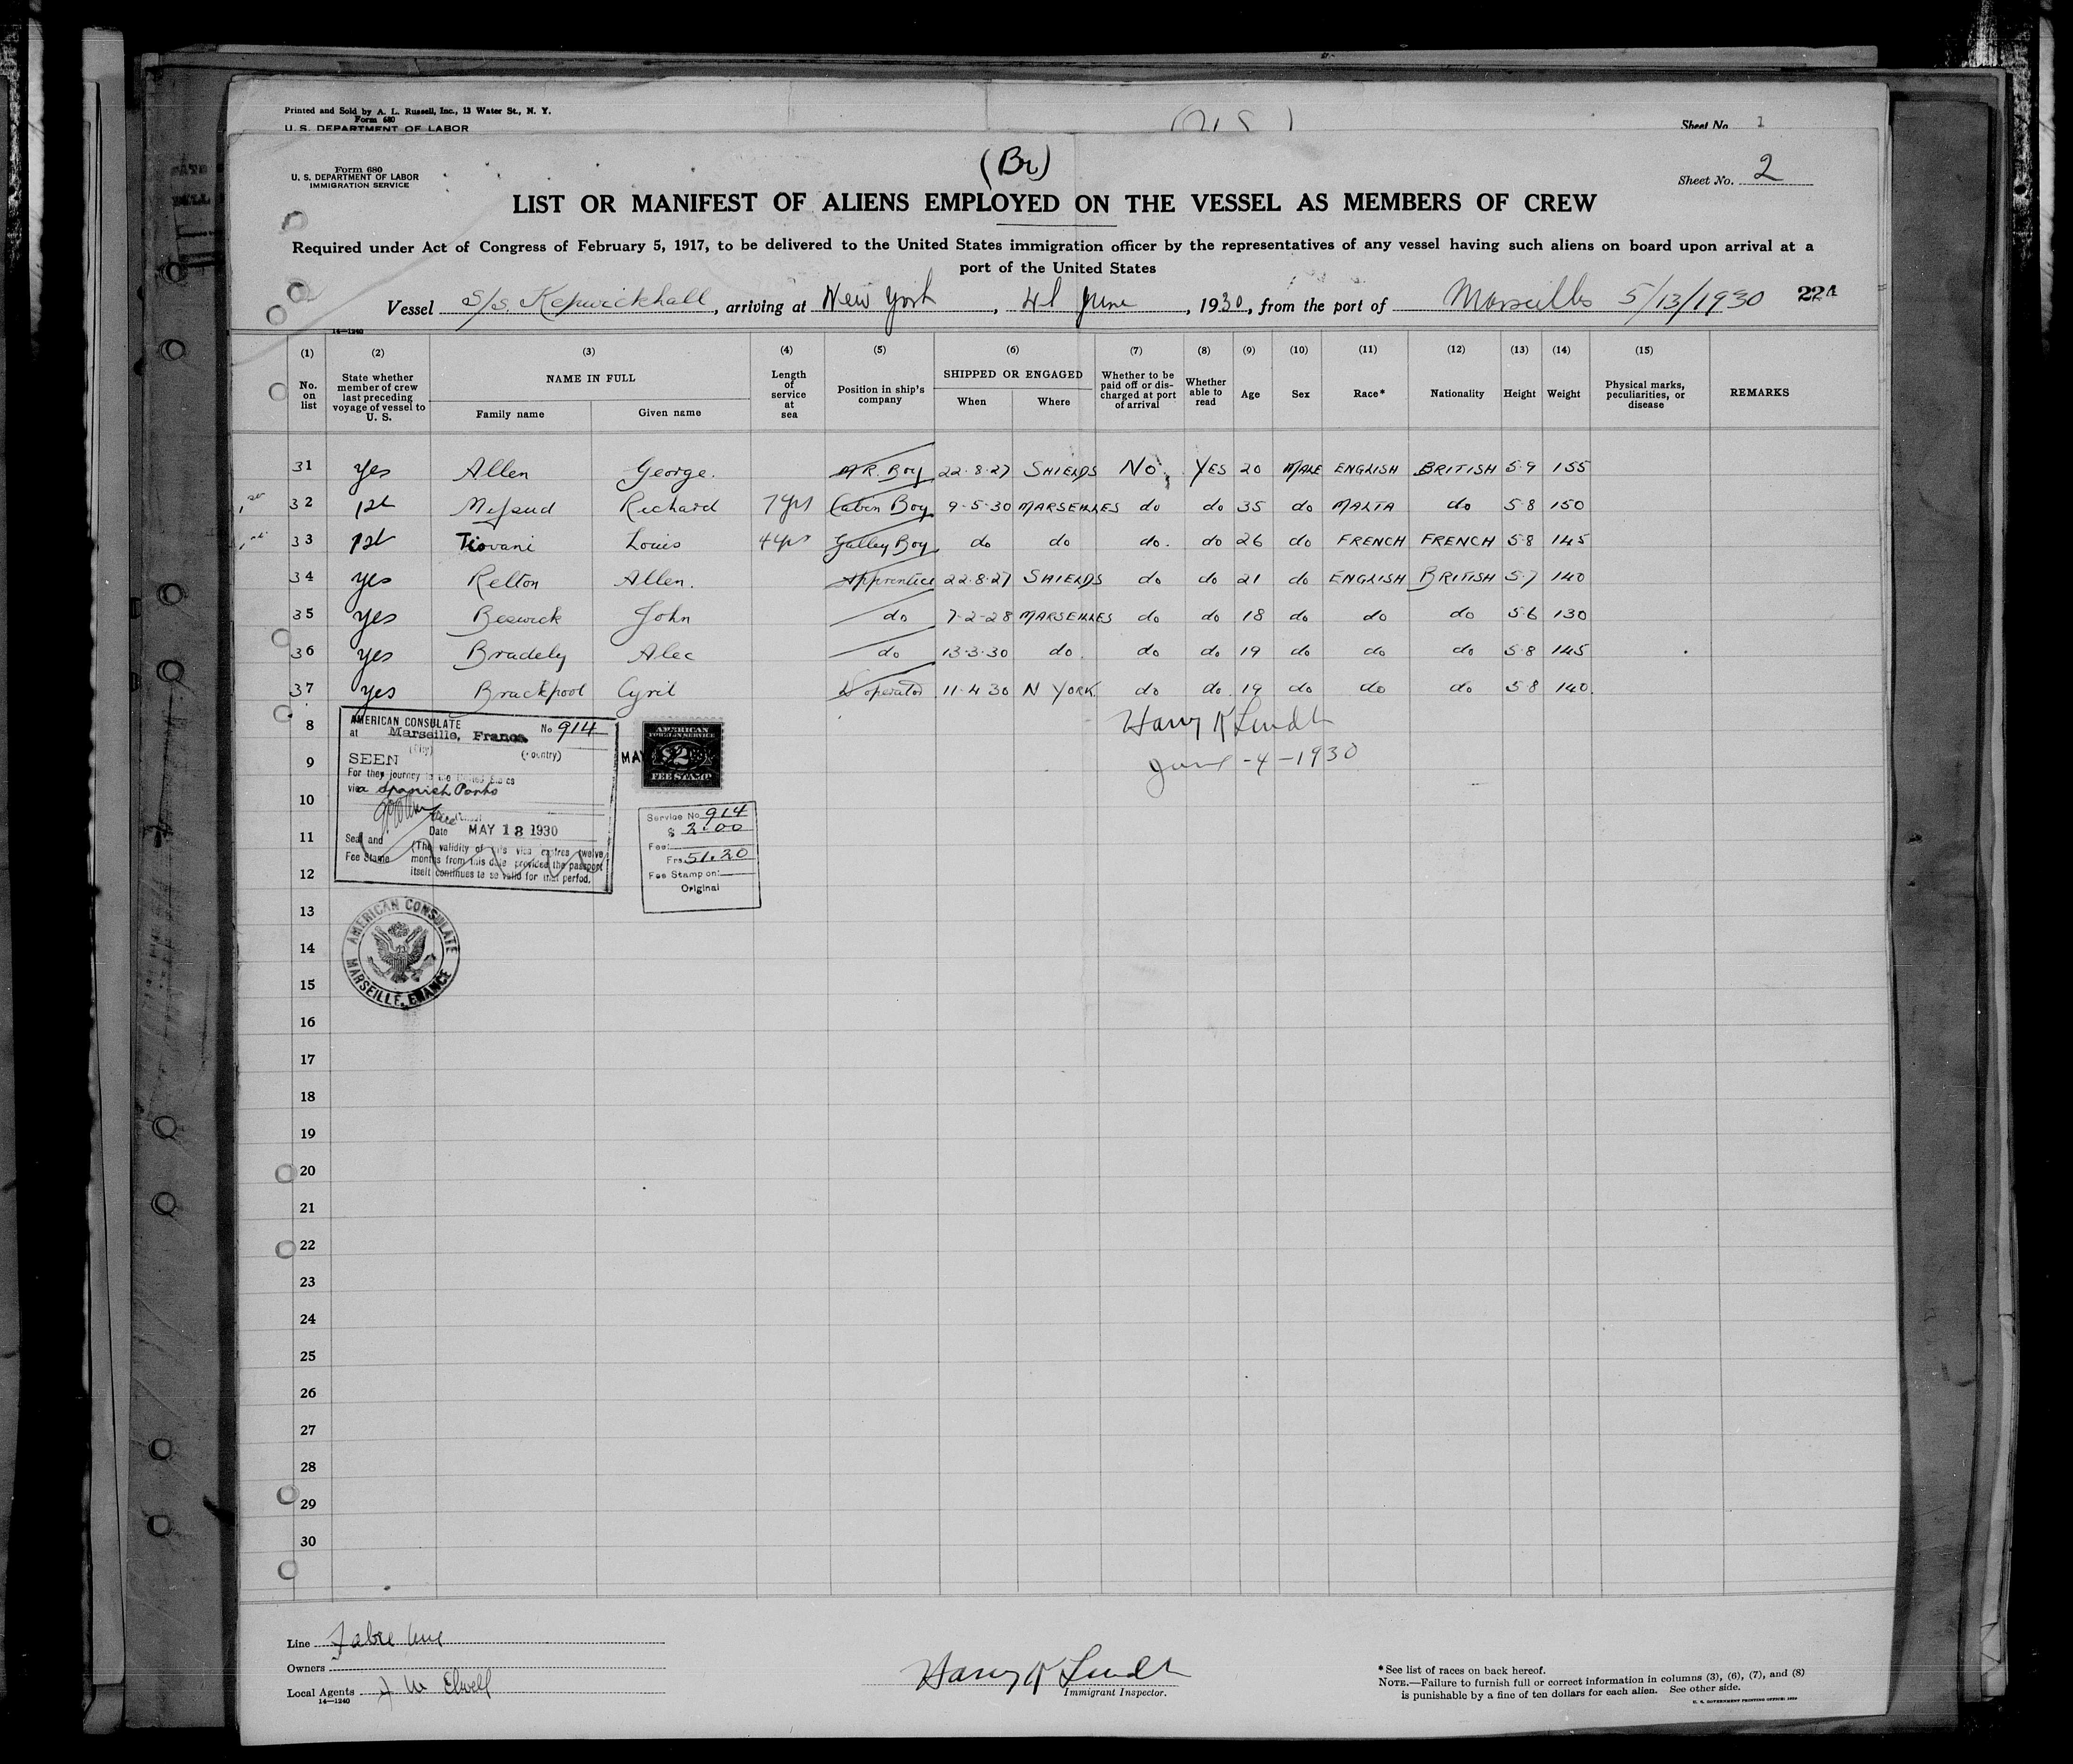 Printed and Sold by A. L. Russell, Inc., 13 Water St., N. Y.
Form 680
U. S. DEPARTMENT OF LABOR
Sheet No. 1
(Br)
Form 680
U. S. DEPARTMENT OF LABOR
IMMIGRATION SERVICE
Sheet No. 2
LIST OR MANIFEST OF ALIENS EMPLOYED ON THE VESSEL AS MEMBERS OF CREW
Required under Act of Congress of February 5, 1917, to be delivered to the United States immigration officer by the representatives of any vessel having such aliens on board upon arrival at a
port of the United States
Vessel S/S. Keswickhall, arriving at New York, 4th June, 1930, from the port of Marseilles 5/13/1930 224
14—1240
(1) (2) (3) (4) (5) (6) (7) (8) (9) (10) (11) (12) (13) (14) (15)
No. on list State whether member of crew last preceding voyage of vessel to U. S. NAME IN FULL Family name Given name Length of service at sea Position in ship's company SHIPPED OR ENGAGED When Where Whether to be paid off or discharged at port of arrival Whether able to read Age Sex Race* Nationality Height Weight Physical marks, peculiarities, or disease REMARKS
31 Yes Allen George. M.R. Boy 22-8-27 SHIELDS No. YES 20 MALE ENGLISH BRITISH 5-9 155
32 1st Richard 7 yrs Cabin Boy 9-5-30 MARSEILLES do do 35 do MALTA do 5-8 150
33 1st Tiovani Louis 4 yrs Galley Boy do do do. do 26 do FRENCH FRENCH 5-8 145
34 Yes Relton Allen. Apprentice 22-8-27 SHIELDS do do 21 do ENGLISH BRITISH 5-7 140
35 Yes Beswick John do 7-2-28 MARSEILLES do do 18 do do do 5-6 130
36 Yes Bradely Alec do 13-3-30 do. do do 19 do do do 5-8 145
37 Yes Brackpool Cyril W operator 11-4-30 N YORK. do do. 19 do do do 5-8 140.
8 Harry K Lindt
9 June-4-1930
10
11
12
13
14
15
16
17
18
19
20
21
22
23
24
25
26
27
28
29
30
AMERICAN CONSULATE
at Marseille, France No 914
(City) (Country)
SEEN
For the journey to the United States
via Spanish Ports
Date MAY 13 1930
Seal and Fee Stamp
(The validity of this visa expires twelve
months from this date provided the passport
itself continues to be valid for that period.
MAY
AMERICAN
FOREIGN SERVICE
$2
FEE STAMP
Service No. 914
$ 2.00
Fee:
Frs 51.20
Fee Stamp on:
Original
AMERICAN CONSULATE
MARSEILLE, FRANCE
Line Fabre Line
Owners
Local Agents J W Elwell
14—1240
Harry K Lindt
Immigrant Inspector.
*See list of races on back hereof.
NOTE.—Failure to furnish full or correct information in columns (3), (6), (7), and (8)
is punishable by a fine of ten dollars for each alien. See other side.